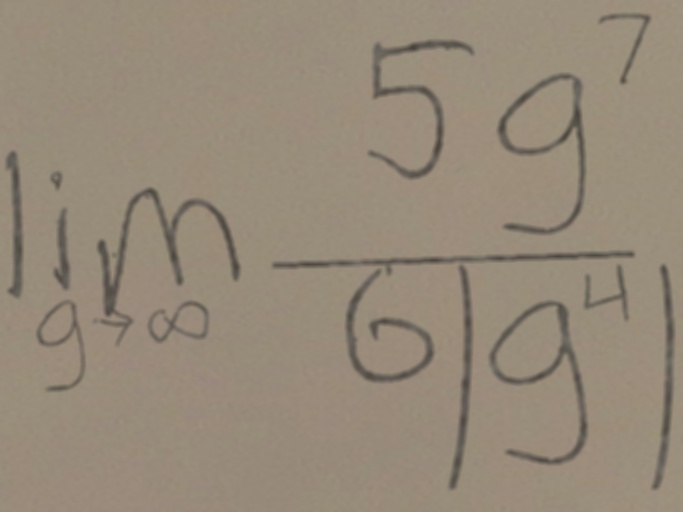 \lim_{g \to \infty} \frac{5g^7}{6|g^4|}